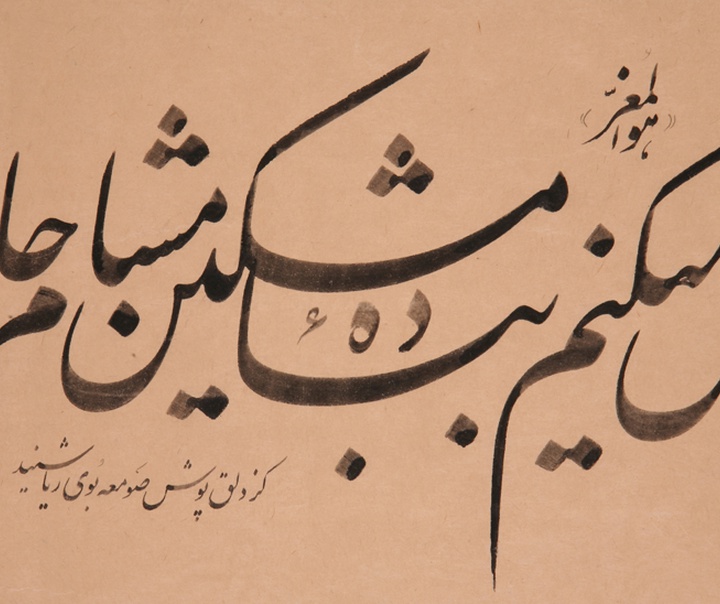 هوالمعزّ
میکنم ببادهٔ مشکین مشام
کز دلق پوش صومعه بوی ریا شنید